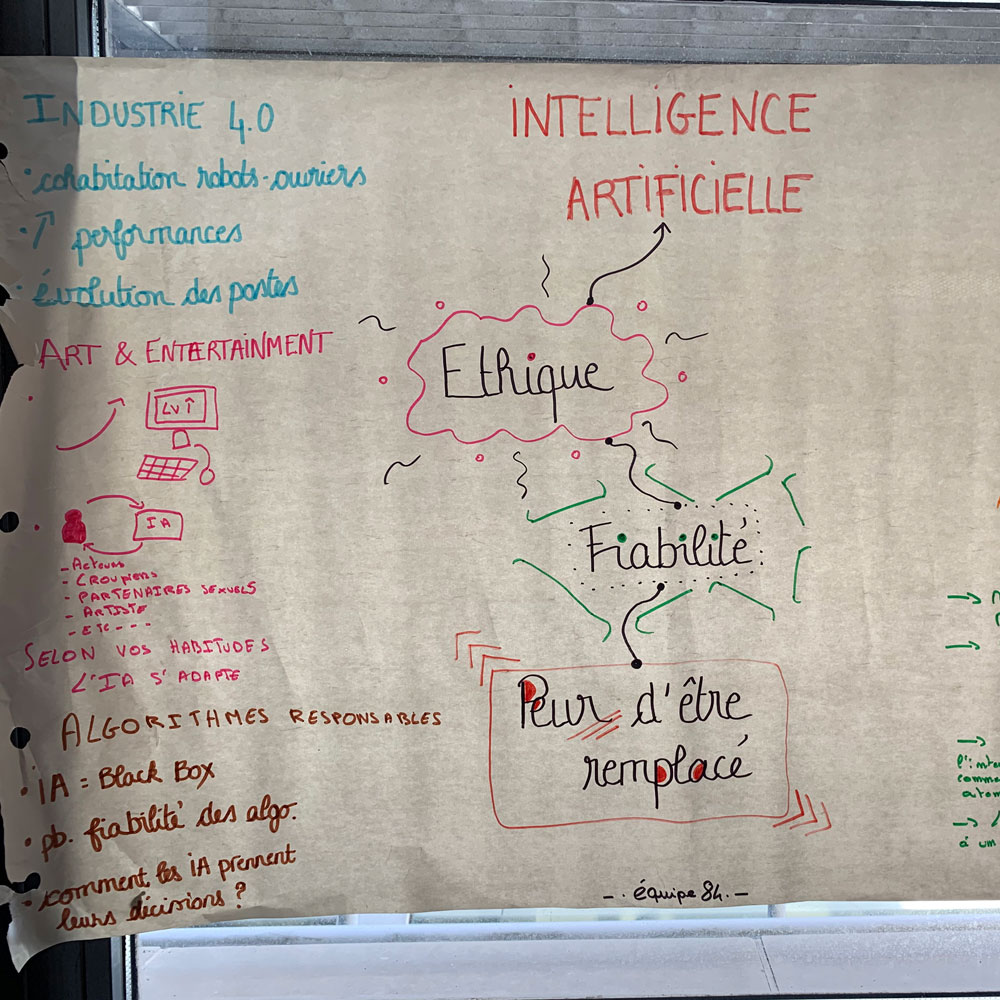 INDUSTRIE 4.0
• cohabitation robots-ouvriers
• ↑ performances
• évolution des postes
ART & ENTERTAINMENT
LV ↑
IA
- Acteurs
- CROUPIERS
- PARTENAIRES SEXUELS
- ARTISTE
- ETC - - -
SELON VOS HABITUDES
L'IA S'ADAPTE
ALGORITHMES RESPONSABLES
• IA = Black Box
• pb. fiabilité des algo.
• comment les iA prennent
leurs décisions ?
INTELLIGENCE
ARTIFICIELLE
Ethique
Fiabilité
Peur d'être
remplacé
- . équipe 84 . -
→
→
→
l'inte
comme
atom
→
à um